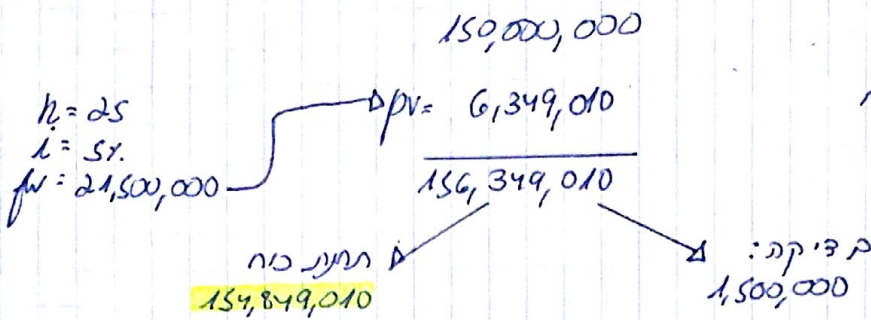 150,000,000
n = 25
i = 5%
fv = 21,500,000
pv = 6,349,010
156,349,010
תחנת כוח
154,849,010
בדיקה:
1,500,000